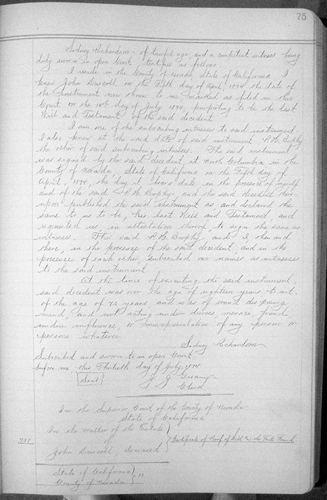 75
Sidney Richardson of lawful age and a competent witness being
duly sworn in open Court, testifies as follows
I reside in the County of Nevada State of California I
knew John Driscoll on the Fifth day of April 1890, the date of
the Instrument now shown to me marked as filed in this
Court on the 10th day of July 1890, purporting to be the last
Will and Testament of the said decedent.
I am one of the subscribing witnesses to said instrument
I also knew at the said date of said instrument
the other of said subscribing witnesses. The said instrument
was signed by the said decedent, at North Columbia in the
County of Nevada State of California on the Fifth day of
April 1890, the day it bears date in the presence of myself
and of the said and the said decedent there
upon published the said Instrument as and declared the
same to us to be, his last Will and Testament, and
requested us, in attestation thereof, to sign the same as
witnesses. The said and I the said
there in the presence of the said decedent, and in the
presence of each other subscribed our names as witnesses
to the said instrument
At the time of executing the said instrument
said decedent was over the age of eighteen years to wit,
of the age of 72 years, and was of sound disposing
mind, and not acting under duress, menace, fraud,
undue influence, or misrepresentation of any person or
persons whatever
Sidney Richardson
Subscribed and sworn to in open Court
before me this Thirtieth day of July, 1890
Seal
Clerk
In the Superior Court of the County of Nevada
State of California
In the Matter of the Estate
of
John Driscoll, Deceased
Certificate of Proof of Will
State of California
County of Nevada